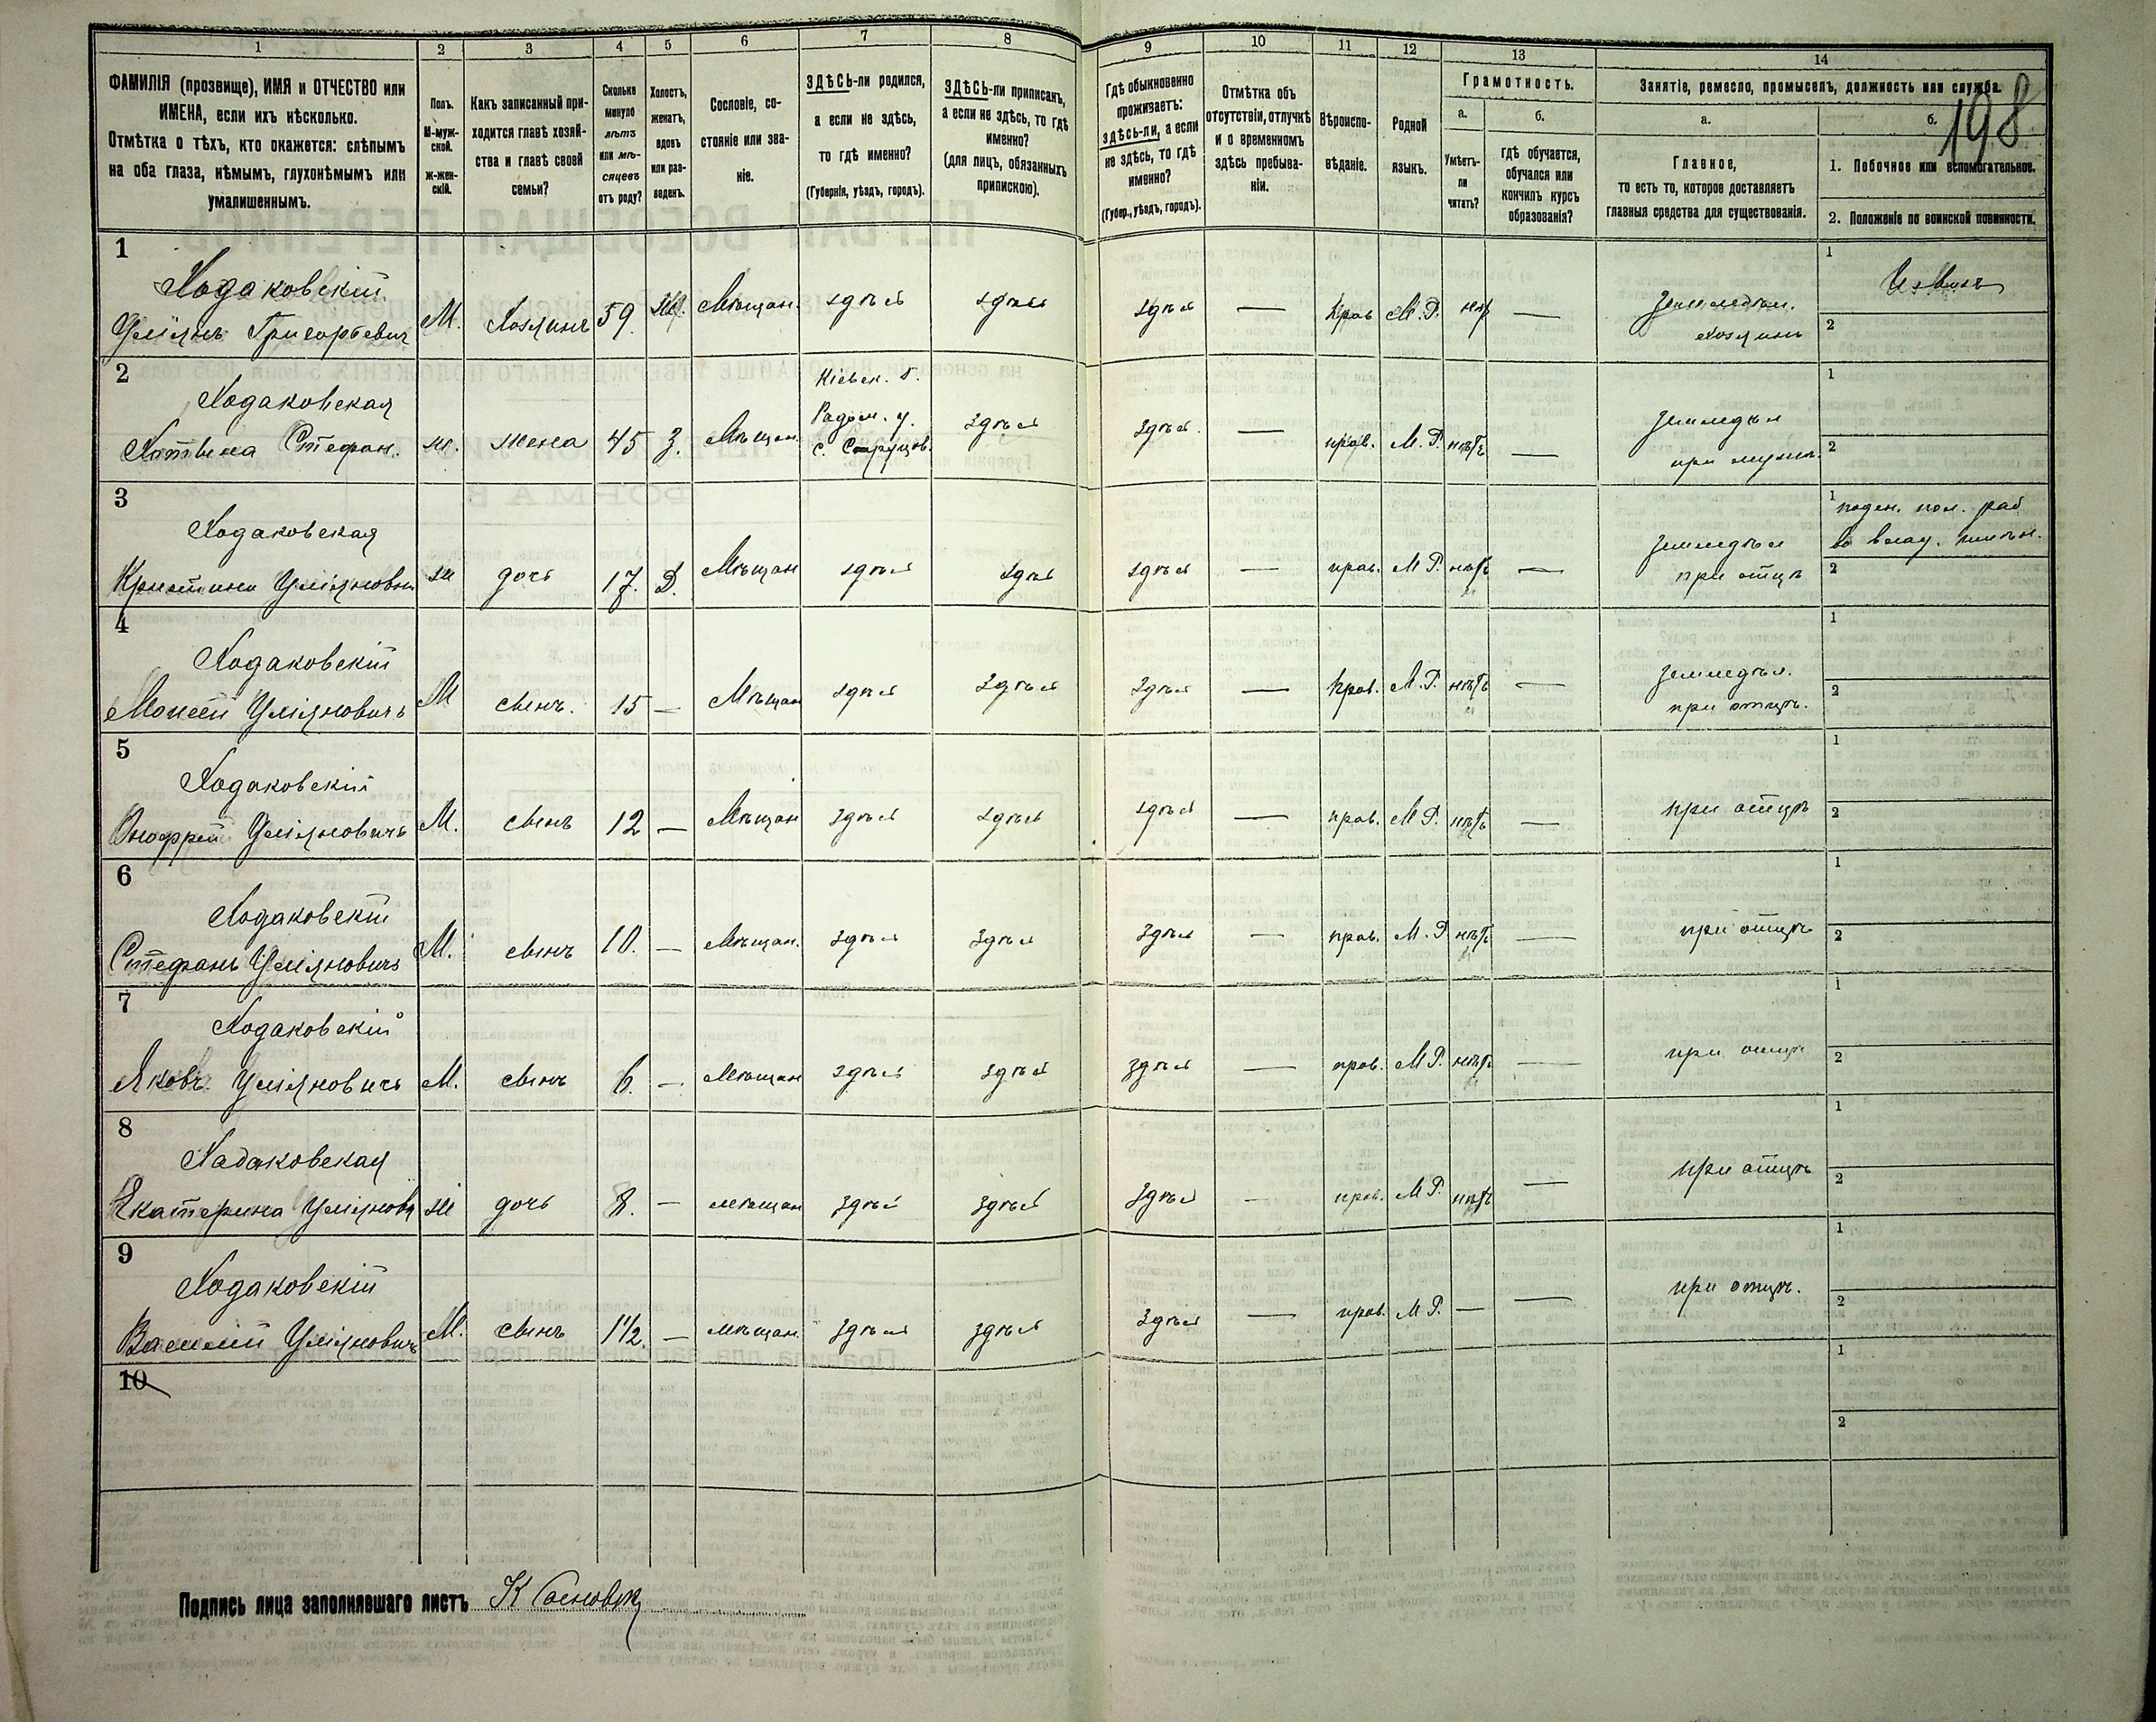 1 2 3 4 5 6 7 8 9 10 11 12 13 14
ФАМИЛІЯ (прозвище), ИМЯ и ОТЧЕСТВО или ИМЕНА, если ихъ нѣсколько.
Отмѣтка о тѣхъ, кто окажется: слѣпымъ на оба глаза, нѣмымъ, глухонѣмымъ или умалишеннымъ.
Полъ. М-мужской. Ж-женскій.
Какъ записанный приходится главѣ хозяйства и главѣ своей семьи?
Сколько минуло лѣтъ или мѣсяцевъ отъ роду?
Холостъ, женатъ, вдовъ или разведенъ.
Сословіе, состояніе или званіе.
ЗДѢСЬ-ли родился, а если не здѣсь, то гдѣ именно? (Губернія, уѣздъ, городъ).
ЗДѢСЬ-ли приписанъ, а если не здѣсь, то гдѣ именно? (для лицъ, обязанныхъ припискою).
Гдѣ обыкновенно проживаетъ: здѣсь-ли, а если не здѣсь, то гдѣ именно? (Губер., уѣздъ, городъ).
Отмѣтка объ отсутствіи, отлучкѣ и о временномъ здѣсь пребываніи.
Вѣроисповѣданіе.
Родной языкъ.
Грамотность.
а. Умѣетъ-ли читать?
б. гдѣ обучается, обучался или кончилъ курсъ образованія?
Занятіе, ремесло, промыселъ, должность или служба.
198
а. Главное, то есть то, которое доставляетъ главныя средства для существованія.
б.
1. Побочное или вспомогательное.
2. Положеніе по воинской повинности.
1
Ходаковскій
Уліянъ Григорьевич М. Хозяинъ 59 Ж. Мѣщан. здѣсь здѣсь здѣсь — прав М.Р. нѣт — хозяинъ
1
2
2
Ходаковская
Степан. ж. жена 45 З. Мѣщан. Кіевск. г. Радом. у. с. здѣсь здѣсь — прав. М.Р. нѣтъ — земледѣл при мужѣ
1
2
3
Ходаковская
Кристина Уліяновна ж дочь 17. Д. Мѣщан здѣсь здѣсь здѣсь — прав. М.Р. нѣтъ — земледѣл при отцѣ
1 поден. пол. раб
2
4
Ходаковскій
Моисей Уліяновичъ М сынъ. 15 — Мѣщан здѣсь здѣсь здѣсь — прав. М.Р. нѣтъ — земледѣл. при отцѣ.
1
2
5
Ходаковскій
Онофрей Уліяновичъ М. сынъ 12 — Мѣщан здѣсь здѣсь здѣсь — прав. М.Р. нѣтъ — при отцѣ
1
2
6
Ходаковскій
Степанъ Уліяновичъ М. сынъ 10. — Мѣщан. здѣсь здѣсь здѣсь — прав. М.Р. нѣтъ — при отцѣ
1
2
7
Ходаковскій
Яковъ Уліяновичъ М. сынъ 6. — Мѣщан здѣсь здѣсь здѣсь — прав. М.Р. нѣтъ — при отцѣ
1
2
8
Хадаковская
Екатерина Уліянова ж дочь 8. — мѣщан здѣсь здѣсь здѣсь — прав. М.Р. нѣтъ — при отцѣ
1
2
9
Ходаковскій
Василій Уліяновичъ М. сынъ 1 1/2 — мѣщан. здѣсь здѣсь здѣсь — прав. М.Р. — — при отцѣ.
1
2
10
1
2
Подпись лица заполнявшаго листъ К